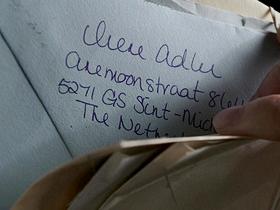 Irene Adler
Anemoonstraat
5271 GS Sint-Mich
The Nether